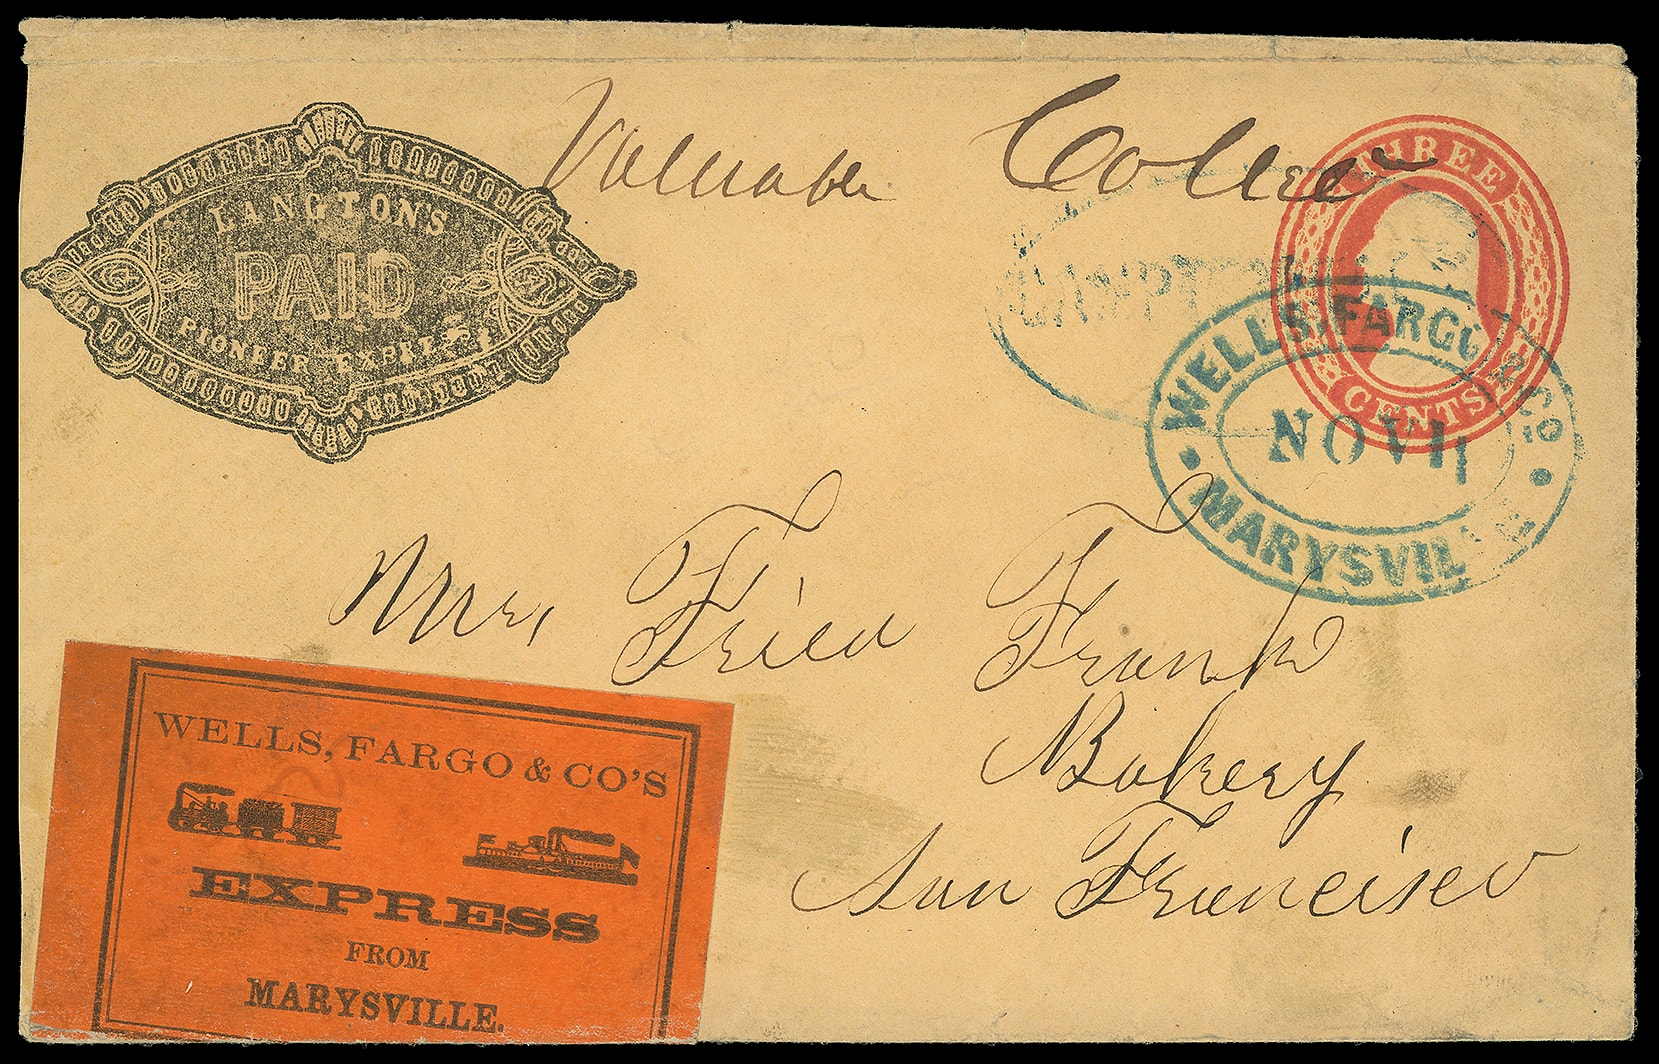 Valuable Collect
LANGTON'S
PAID
PIONEER EXPRESS
THREE
CENTS
WELLS, FARGO & CO
NOV 11
MARYSVILLE
Mr. Fried Frank
Bakery
San Francisco
WELLS, FARGO & CO'S
EXPRESS
FROM
MARYSVILLE.